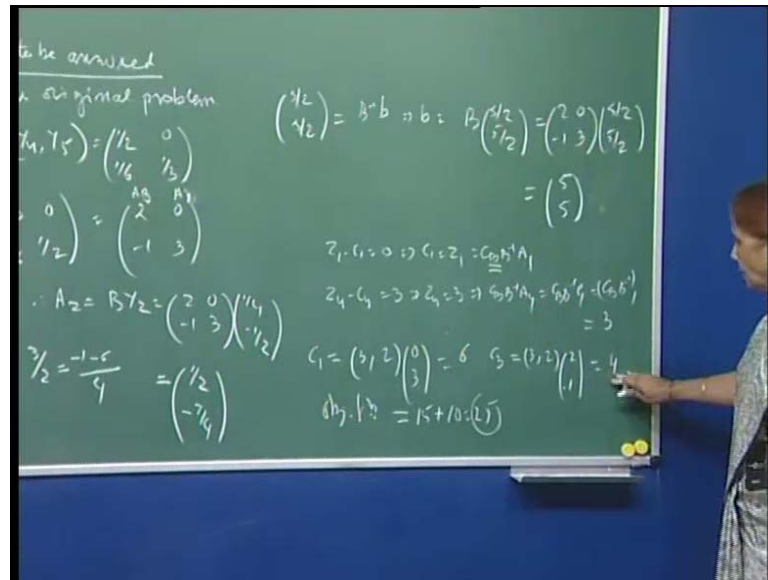 to be answered
original problem
Y4, Y5) = (1/2 0
1/6 1/3)
A3 A1
0
1/2) = (2 0
-1 3)
∴ A2 = BY2 = (2 0
-1 3)(1/4
-1/2)
3/2 = (-1-6)/4 = (1/2
-7/4)
(5/2
5/2) = B⁻¹b ⇒ b = B(5/2
5/2) = (2 0
-1 3)(5/2
5/2)
= (5
5)
Z1-C1=0 ⇒ C1=Z1 = CBB⁻¹A1
Z4-C4=3 ⇒ Z4=3 ⇒ CBB⁻¹A4 = CBB⁻¹e1 = (CBB⁻¹)1
= 3
C1 = (3, 2)(0
3) = 6 C3 = (3, 2)(2
-1) = 4
obj. fn = 15+10=25